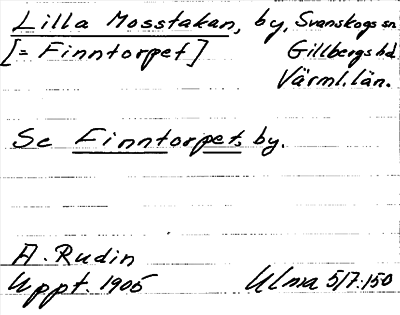 Lilla Mosstakan, by, Svanskogs sn
[= Finntorpet] Gillbergs hd
Värml. län.
Se Finntorpet, by.
A. Rudin
Uppt. 1905 Ulma 517:150